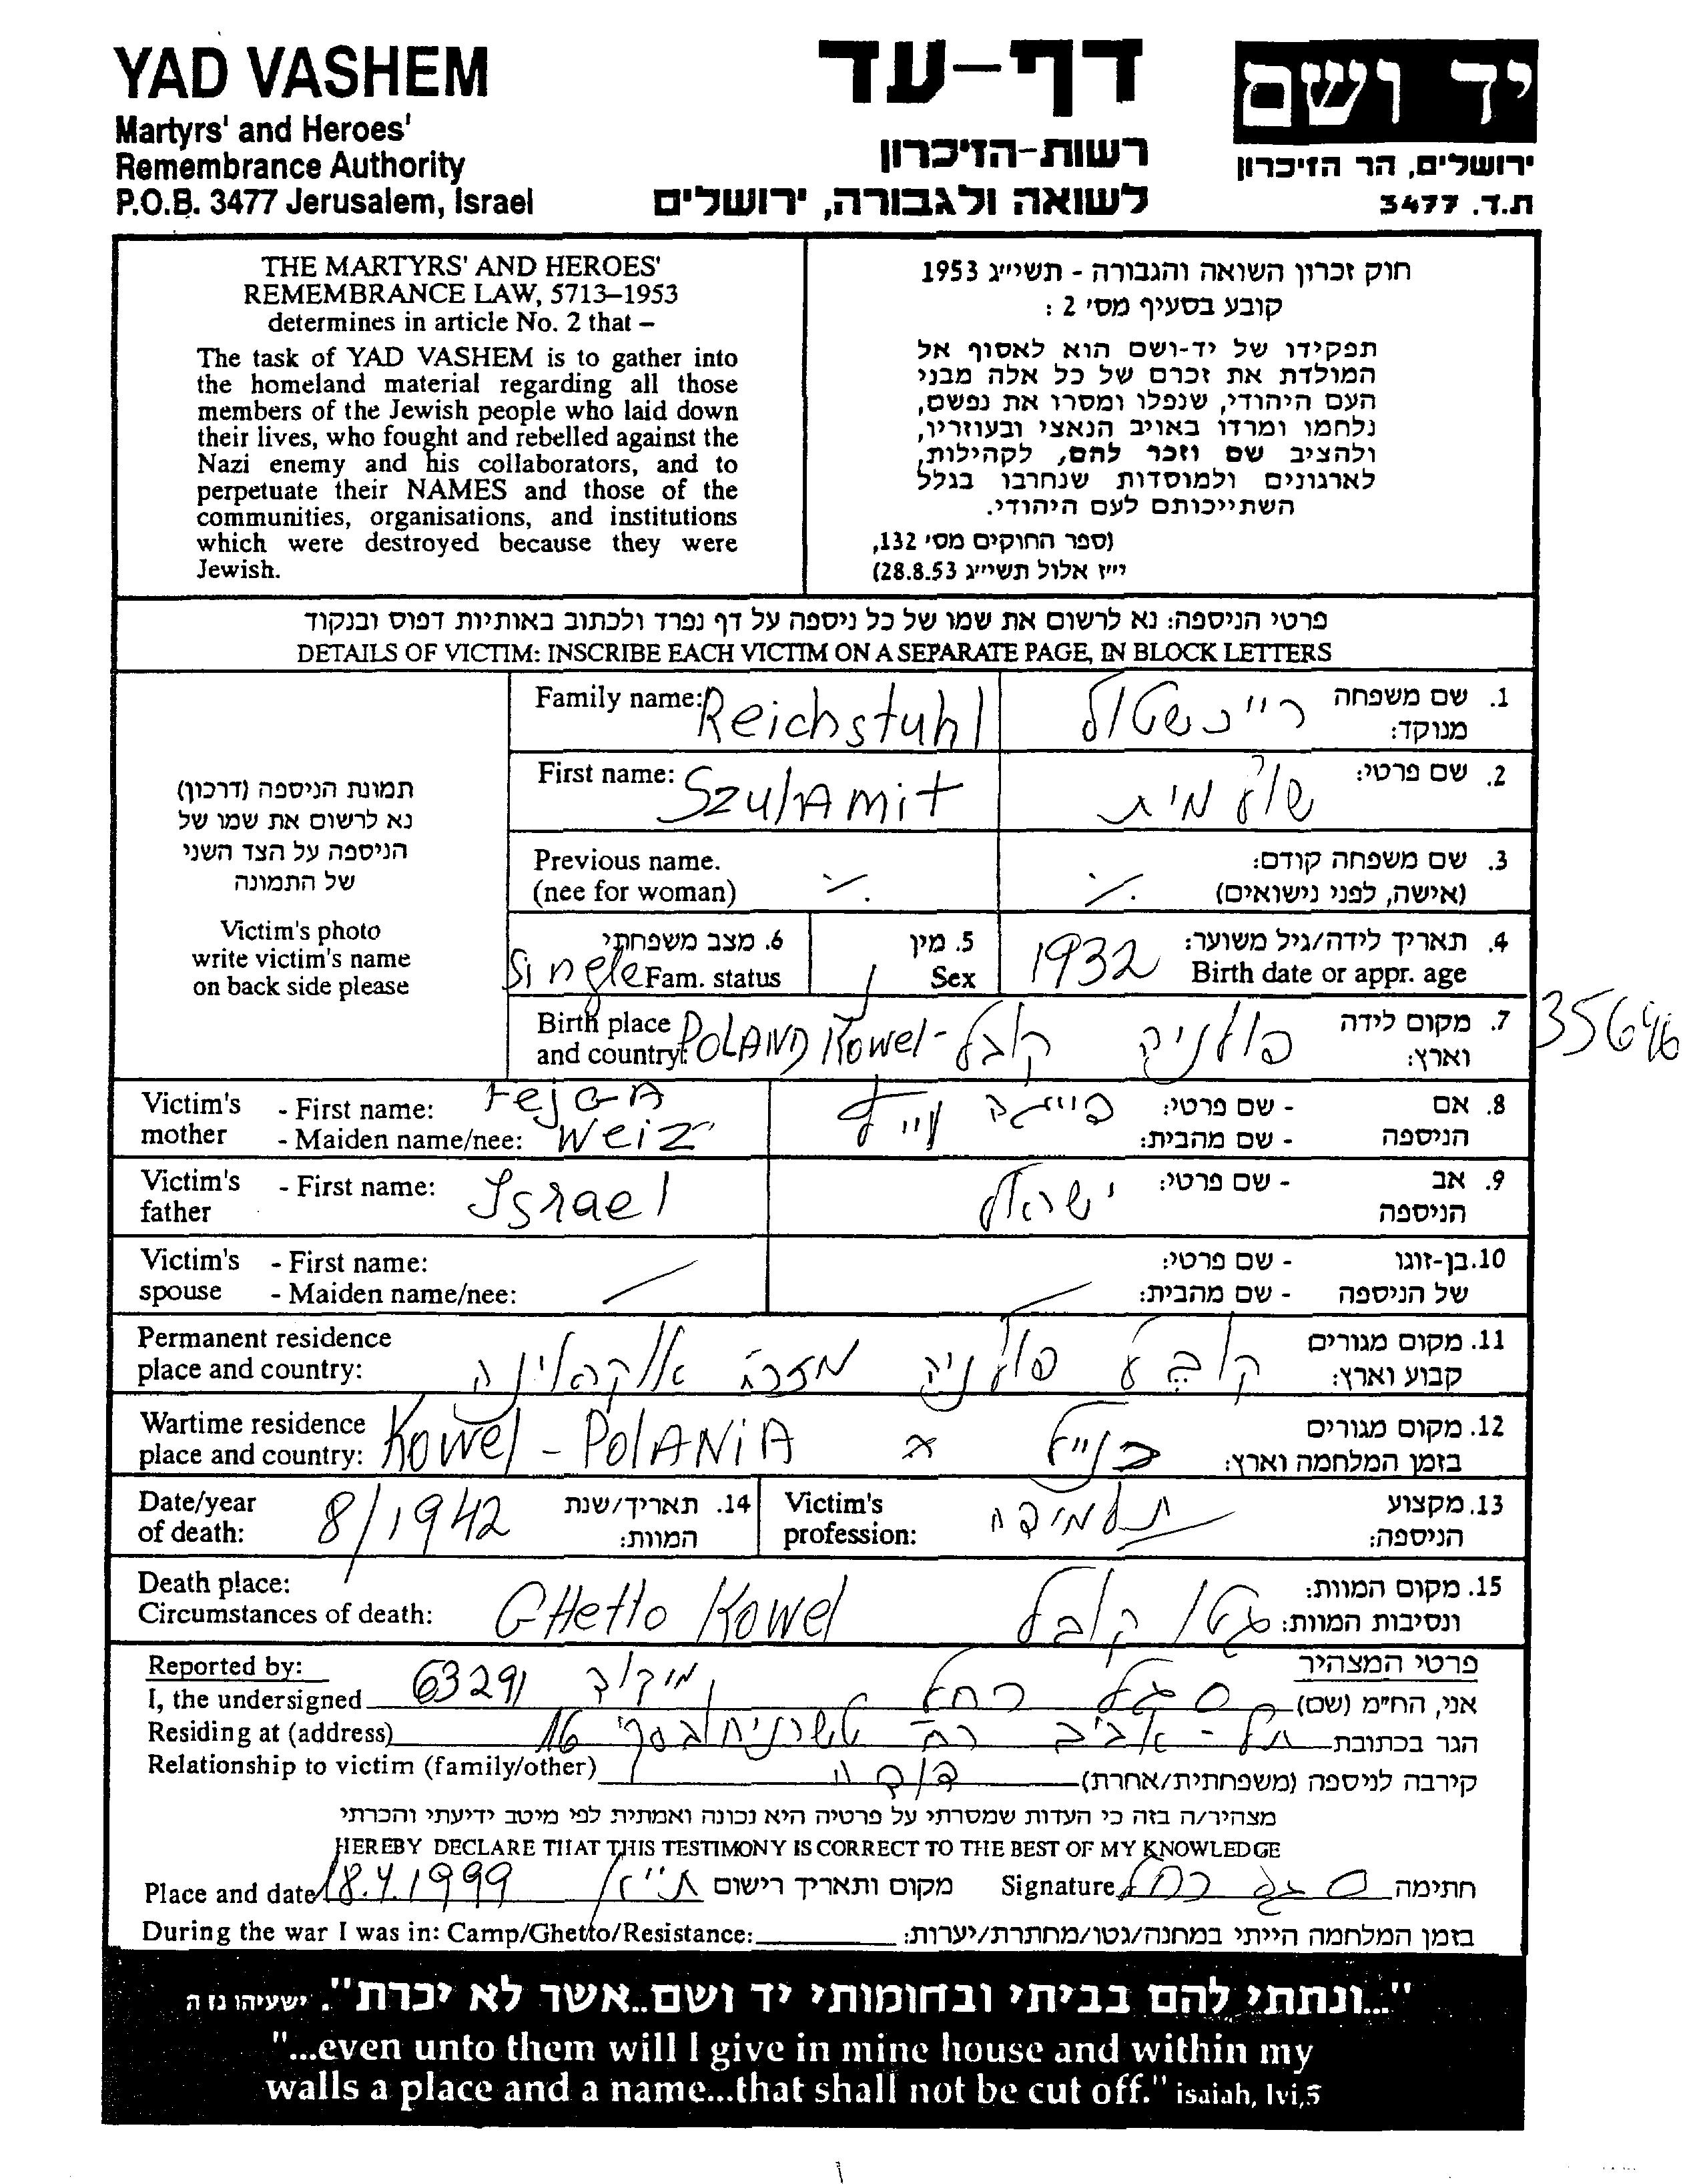 YAD VASHEM
Martyrs' and Heroes'
Remembrance Authority
P.O.B. 3477 Jerusalem, Israel
דף-עד
רשות-הזיכרון
לשואה ולגבורה, ירושלים
יד ושם
ירושלים, הר הזיכרון
ת.ד. 3477
THE MARTYRS' AND HEROES'
REMEMBRANCE LAW, 5713–1953
determines in article No. 2 that –
The task of YAD VASHEM is to gather into
the homeland material regarding all those
members of the Jewish people who laid down
their lives, who fought and rebelled against the
Nazi enemy and his collaborators, and to
perpetuate their NAMES and those of the
communities, organisations, and institutions
which were destroyed because they were
Jewish.
חוק זכרון השואה והגבורה - תשי״ג 1953
קובע בסעיף מס׳ 2 :
תפקידו של יד-ושם הוא לאסוף אל
המולדת את זכרם של כל אלה מבני
העם היהודי, שנפלו ומסרו את נפשם,
נלחמו ומרדו באויב הנאצי ובעוזריו,
ולהציב שם וזכר להם, לקהילות,
לארגונים ולמוסדות שנחרבו בגלל
השתייכותם לעם היהודי.
(ספר החוקים מס׳ 132,
י״ז אלול תשי״ג 28.8.53)
פרטי הניספה: נא לרשום את שמו של כל ניספה על דף נפרד ולכתוב באותיות דפוס ובנקוד
DETAILS OF VICTIM: INSCRIBE EACH VICTIM ON A SEPARATE PAGE, IN BLOCK LETTERS
תמונת הניספה (דרכון)
נא לרשום את שמו של
הניספה על הצד השני
של התמונה
Victim's photo
write victim's name
on back side please
Family name: Reichstuhl
1. שם משפחה מנוקד: רייכשטול
First name: Szulamit
2. שם פרטי: שולמית
Previous name.
(nee for woman) ⁒
3. שם משפחה קודם:
(אישה, לפני נישואים) ⁒
6. מצב משפחתי
Single Fam. status
5. מין
Sex
4. תאריך לידה/גיל משוער:
1932 Birth date or appr. age
Birth place
and country: POLAND Kowel - קובל פולניה
7. מקום לידה
וארץ:
35646
Victim's mother - First name: Fejga
- Maiden name/nee: Weiz
8. אם הניספה - שם פרטי: פייגה
- שם מהבית: וייץ
Victim's father - First name: Israel
9. אב הניספה - שם פרטי: ישראל
Victim's spouse - First name:
- Maiden name/nee:
10. בן-זוגו של הניספה - שם פרטי:
- שם מהבית:
Permanent residence
place and country:
11. מקום מגורים
קבוע וארץ: קובל פולניה אוקראינה
Wartime residence
place and country: Kowel - PolANiA
12. מקום מגורים
בזמן המלחמה וארץ: כנ״ל
Date/year
of death: 8/1942
14. תאריך/שנת
המוות:
Victim's
profession: תלמידה
13. מקצוע
הניספה:
Death place:
Circumstances of death: GHetto Kowel
15. מקום המוות:
ונסיבות המוות: גטו קובל
Reported by:
פרטי המצהיר
I, the undersigned 63291 מיקוד סגל רחל אני, הח״מ (שם)
Residing at (address) 16 תל-אביב רח׳ הגר בכתובת
Relationship to victim (family/other) דודה קירבה לניספה (משפחתית/אחרת)
מצהיר/ה בזה כי העדות שמסרתי על פרטיה היא נכונה ואמתית לפי מיטב ידיעתי והכרתי
HEREBY DECLARE THAT THIS TESTIMONY IS CORRECT TO THE BEST OF MY KNOWLEDGE
Place and date 18.4.1999 ת״א מקום ותאריך רישום Signature סגל רחל חתימה
During the war I was in: Camp/Ghetto/Resistance: בזמן המלחמה הייתי במחנה/גטו/מחתרת/יערות:
"...ונתתי להם בביתי ובחומותי יד ושם..אשר לא יכרת". ישעיהו נו ה
"...even unto them will I give in mine house and within my
walls a place and a name...that shall not be cut off." isaiah, lvi,5